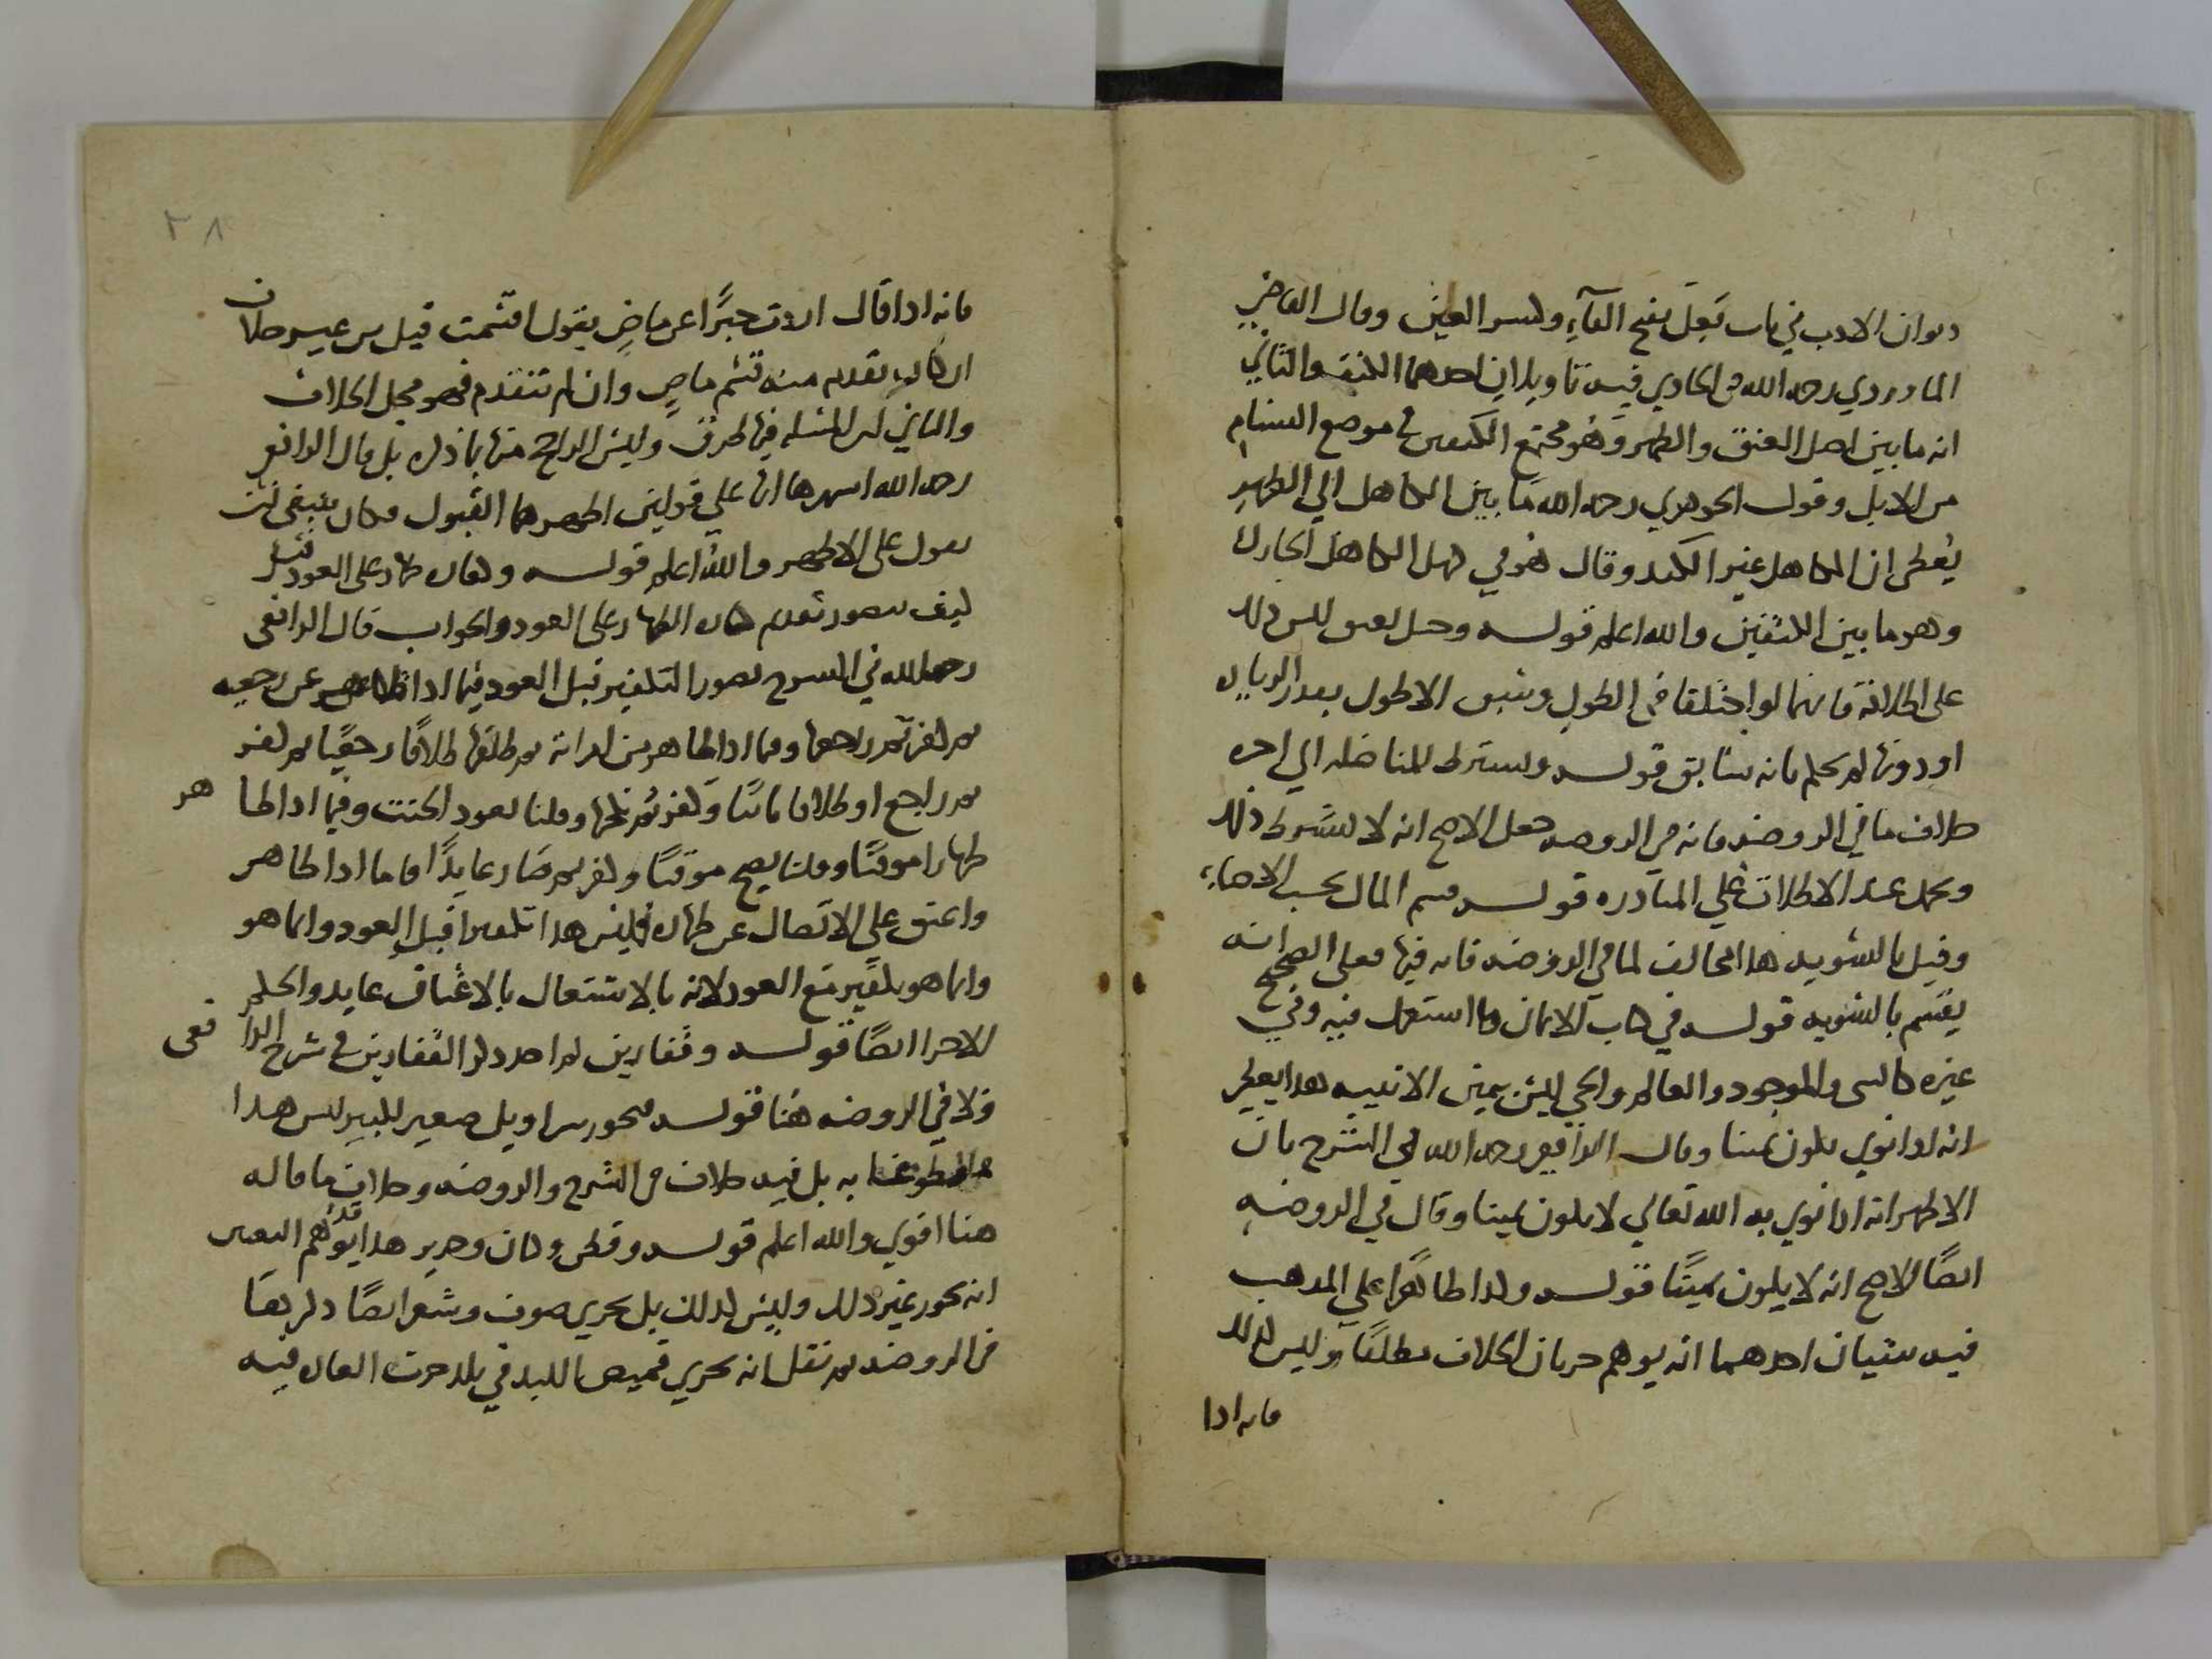 ديوان الادب في باب فَعِل بفتح الفآء وكسر العين وقال القاضي
الماوردي رحمه الله في الحاوي فيه تاويلان احدهما الكتف والثاني
انه ما بين اصل العنق والظهر وهو مجتمع الكتفين في موضع السنام
من الابل وقول الجوهري رحمه الله ما بين الكاهل الي الظهر
يعطي ان الكاهل غير الكتد وقال هو في كهل الكاهل الحارك
وهو ما بين الكتفين والله اعلم قوله وحبل ليس ذلك
على اطلاقه فانهما لو اختلفا في الطول وسبق الاطول بقدر الزيادة
او دونها لم يحكم بانه سابق قوله ويشترط للمناضلة الي اخره
خلاف ما في الروضة فانه في الروضة جعل الاصح انه لا يشترط ذلك
ويحمل عند الاطلاق علي المبادره قوله قسم المال بحسب الاصابة
وقيل بالتسوية هذا مخالف لما في الروضة فان فيها فعلى الصحيح انه
يقسم بالتسويه قوله في كتاب الايمان وما استعمل فيه وفي
غيره كالشى والموجود والعالم والحي ليس بيمين الا بنيه هذا يعطي
انه اذا نوي يكون يمينا وقال الرافعي رحمه الله في الشرح بان
الاظهر انه اذا نوي به الله تعالي لا يكون يمينا وقال في الروضه
ايضًا الاصح انه لا يكون يمينًا قوله وكذا طاهرًا علي المذهب
فيه شيئان احدهما انه يوهم جريان الخلاف مطلقًا وليس كذلك
فانه اذا
٣٨
فانه اذا قال اردت خبرًا عن ماضٍ بقول اقسمت قبل من غير خلاف
ان كان تقدم منه قسم ماضٍ وان لم تتقدم فهو محل الخلاف
والثاني ان المسئله فيها طرق وليس الراجح منها ما ذكره بل قال الرافعي
رحمه الله اشهرها انها علي قولين اظهرهما القبول فكان ينبغي ان
يقول على الاظهر والله اعلم قوله وكفاره ظهار على العود قيل
كيف يتصور تقدم كفاره الظهار على العود والجواب قال الرافعي
رحمه الله في الشرح يصور التكفير قبل العود فيما اذا ظاهر عن رجعيه
ثم كفر ثم راجعها وفيما اذا ظاهر من امراته ثم طلقها طلاقًا رجعيًا ثم كفر
ثم راجع او طلاقا بائنًا وكفر ثم نكحها وقلنا يعود الحنث وفيما اذا ظا هر
ظهارا موقتًا وقلنا يصح موقتًا وكفر ثم صَار عايدًا فاما اذا ظاهر
واعتق علي الاتصال عن ظهاره فليس هذا تكفيرا قبل العود وانما هو
وانما هو تكفير مَع العود لانه بالاشتغال بالاعتاق عايد والحكم
الاجزا ايضًا قوله وقفازين لم اجد ذكر القفازين في شرح الرا فعى
ولا في الروضه هُنا قوله فيجوز سراويل صغير لكبير ليس هذا
مقطوعا به بل فيه خلاف في الشرح والروضه وخلاف ما قاله
هنا اقوي والله اعلم قوله وقطن وكتان وحرير هذا قد يوهم
انه يجوز غير ذلك وليس كذلك بل يجزي صوف وشعر ايضًا ذكر
في الروضه ثم نقل انه يجزي قميص اللبد في بلد جرت العاده فيه